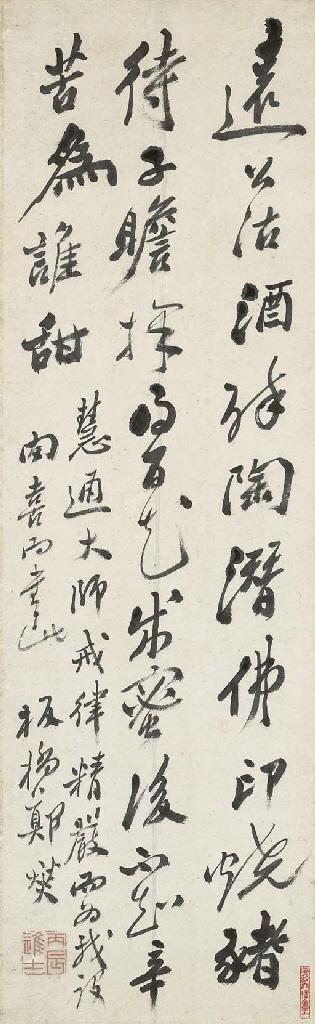 遠公沽酒醉陶潛佛印燒豬
待子瞻採得百花成蜜後不知辛
苦為誰甜
慧通大師戒律精嚴而為我設
肉喜而書此
板橋鄭燮
丙辰進士